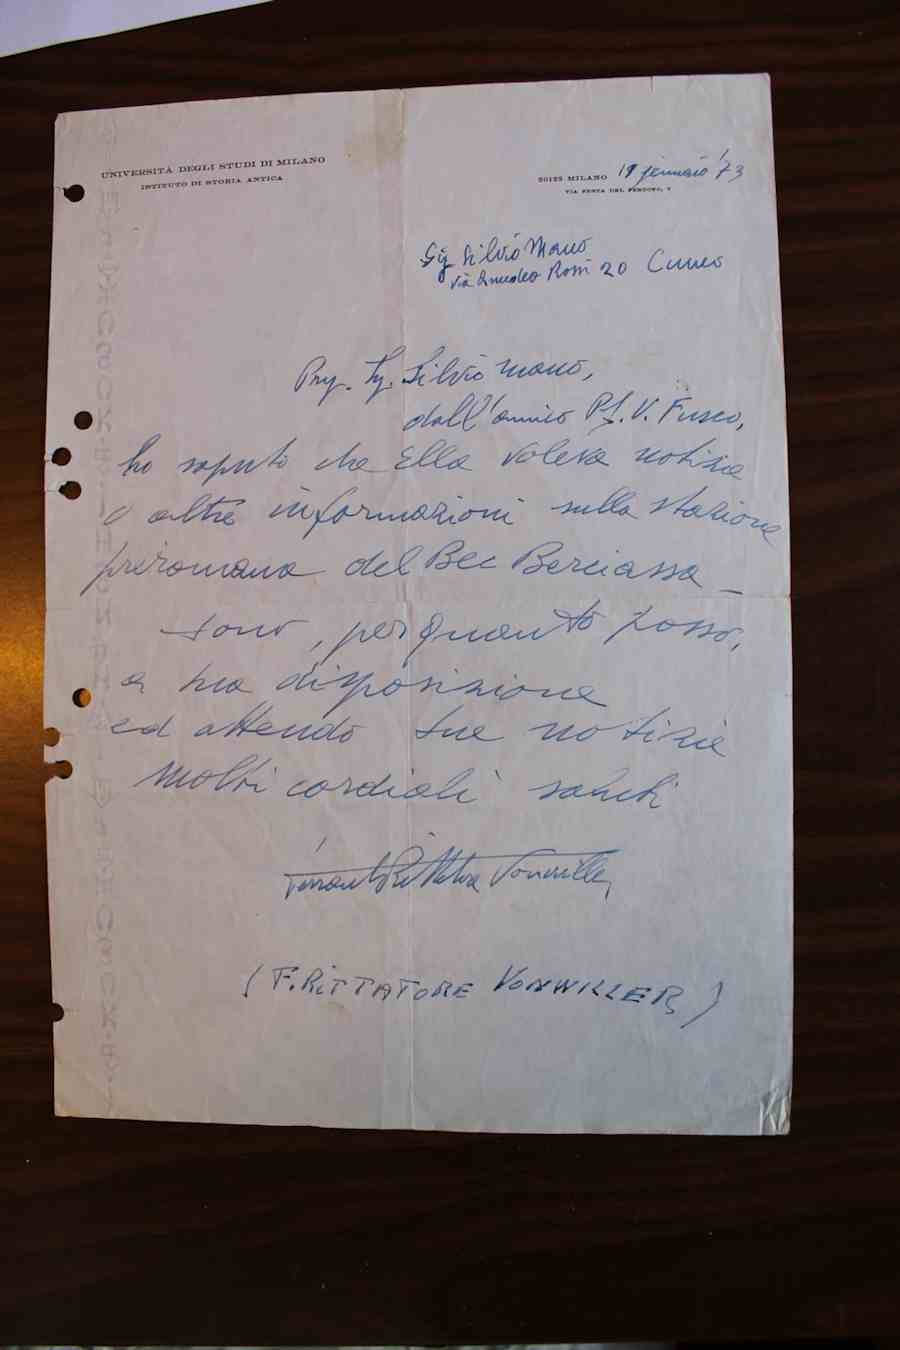 UNIVERSITÀ DEGLI STUDI DI MILANO
ISTITUTO DI STORIA ANTICA
20122 MILANO 19 gennaio '73
VIA FESTA DEL PERDONO, 7
Sig Silvio Mano
via Amedeo Rossi 20 Cuneo
Preg. Sig. Silvio Mano,
dall'amico Pf. V. Fusco,
ho saputo che Ella voleva notizie
o altre informazioni sulla stazione
preromana del Bec Berciassa
sono, per quanto posso,
a sua disposizione
ed attendo sue notizie
molti cordiali saluti
Ferrante Rittatore Vonwiller
(F. RITTATORE VONWILLER)